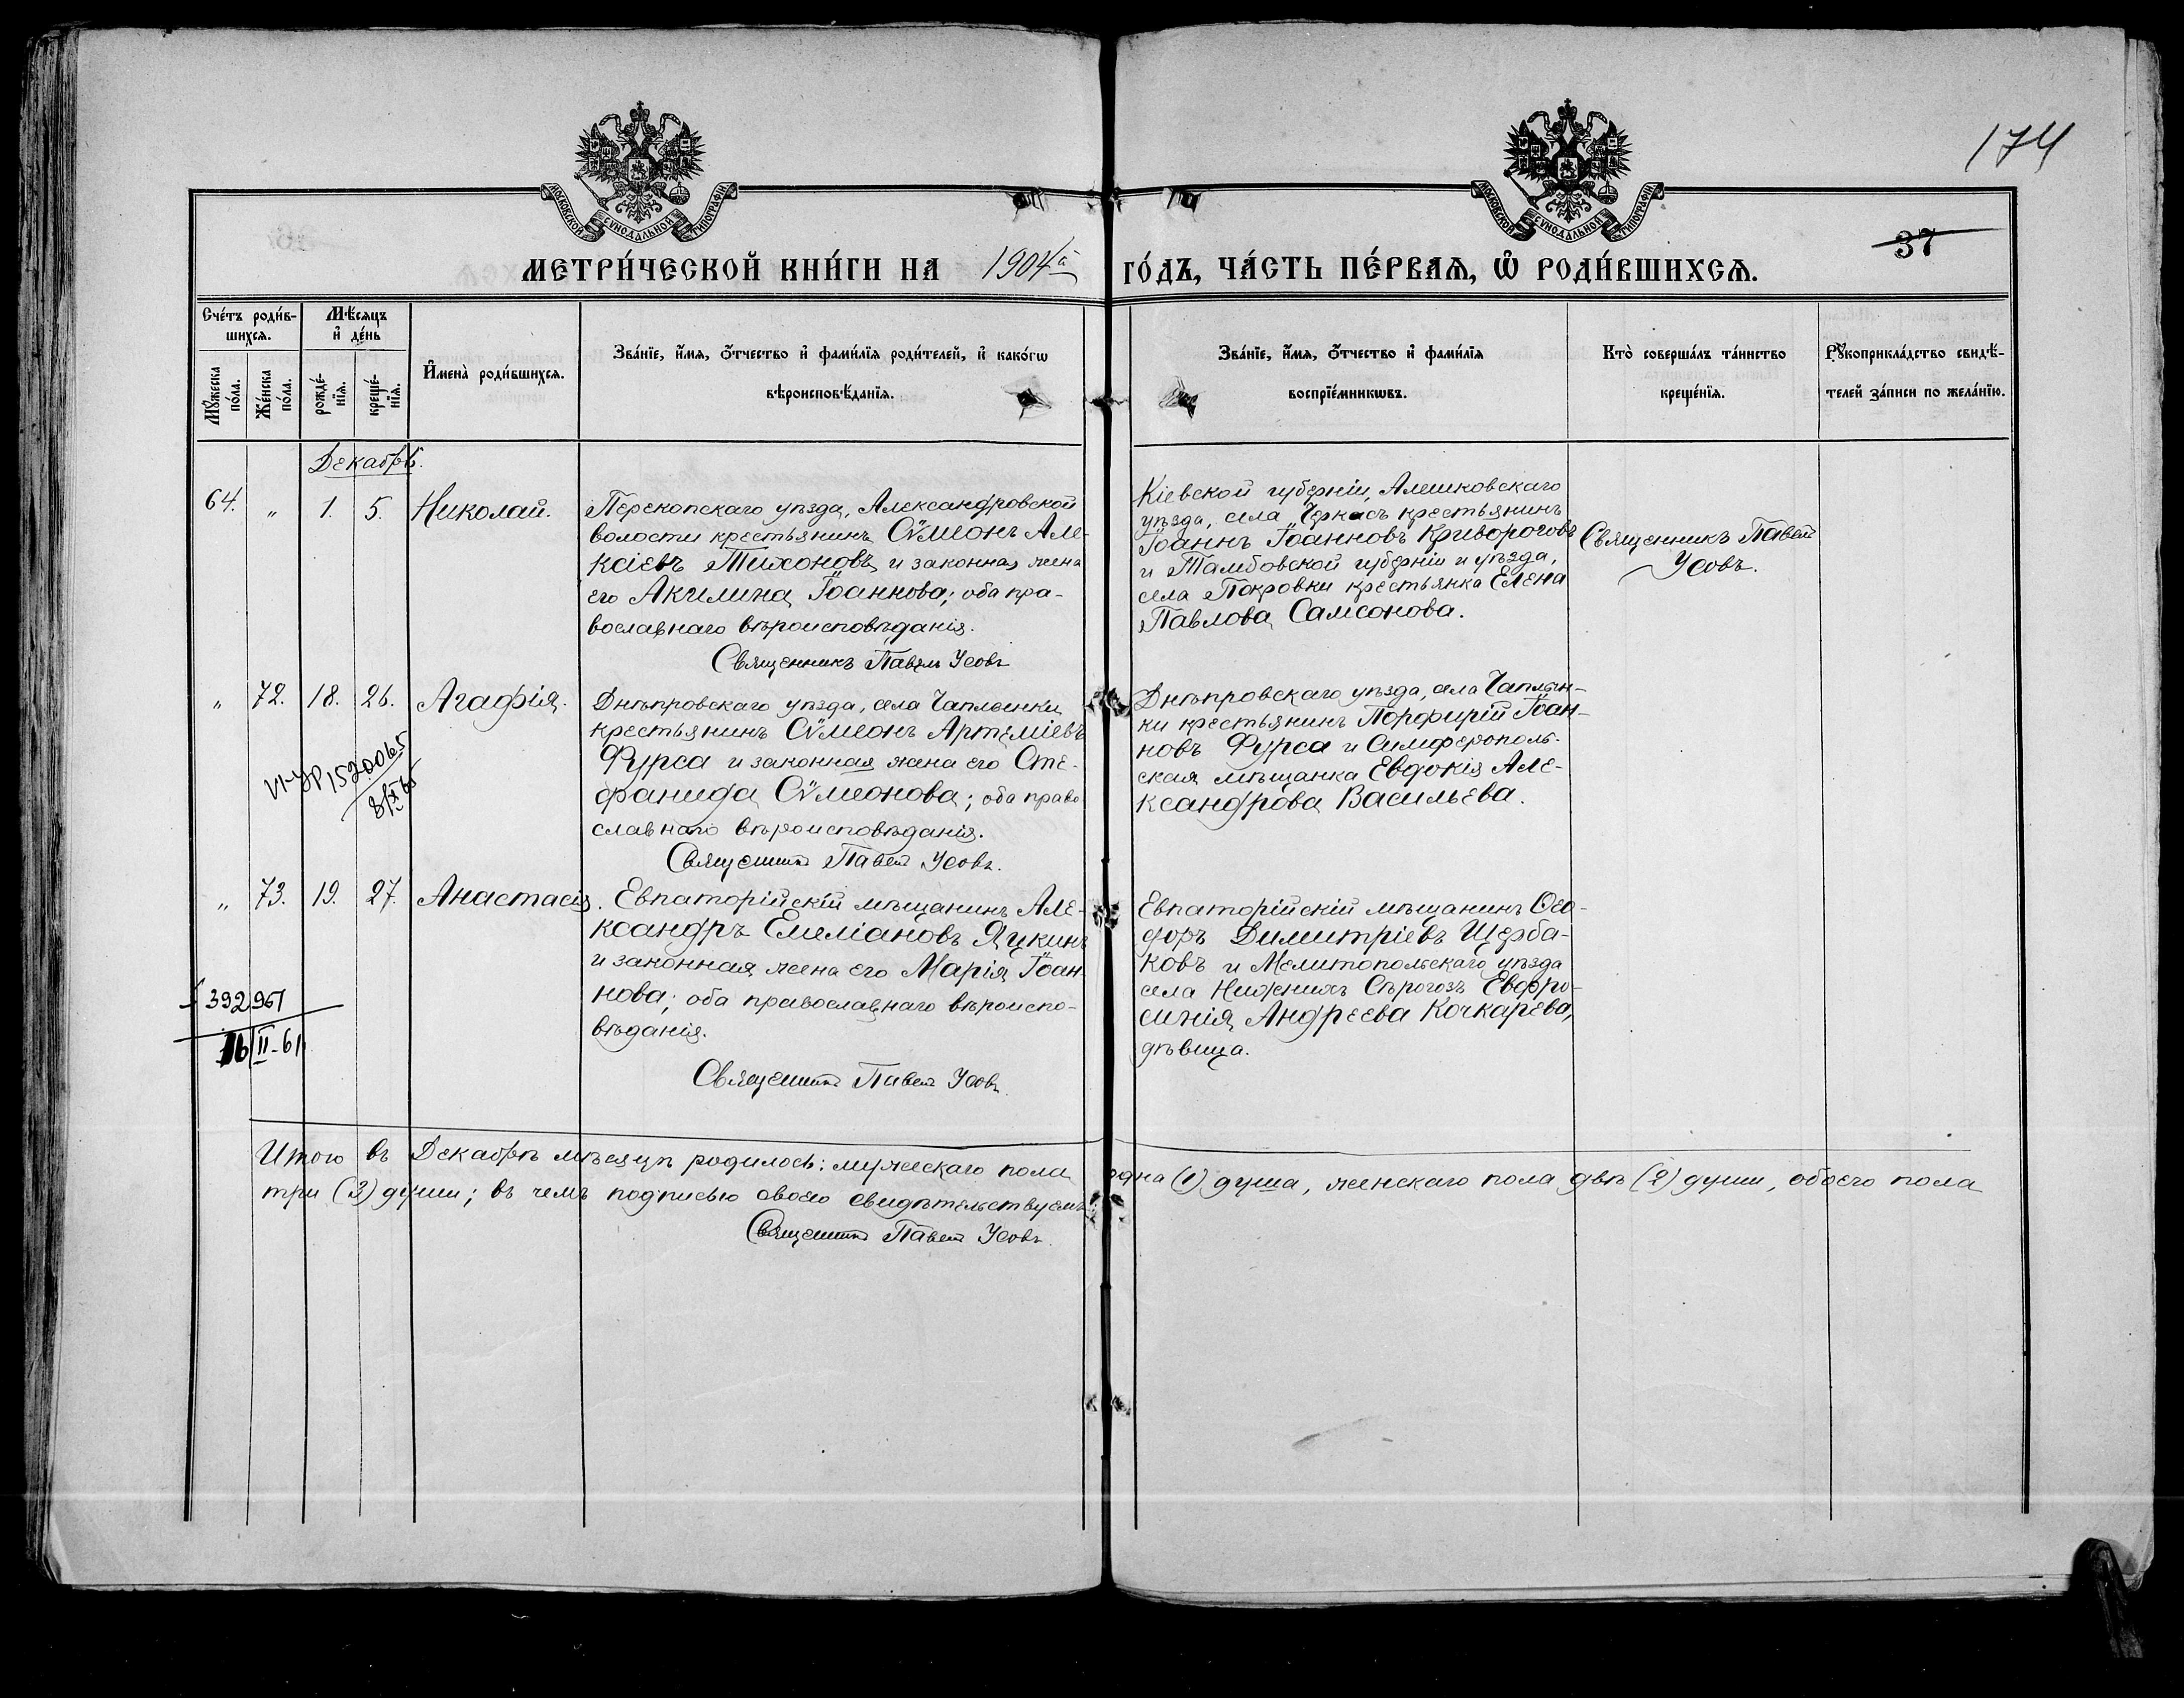 174
37
МОСКОВСКОЙ СѴНОДАЛЬНОЙ ТИПОГРАФІИ
МОСКОВСКОЙ СѴНОДАЛЬНОЙ ТИПОГРАФІИ
МЕТРИ́ЧЕСКОЙ КНИ́ГИ НА 1904й ГО́ДЪ, ЧА́СТЬ ПЕ́РВАЯ, Ѡ РОДИ́ВШИХСЯ.
Сче́тъ роди́в-
шихся.
Мꙋ́жеска по́ла.
Же́нска по́ла.
Мѣ́сяцъ
и де́нь
рожде́-
нїя.
креще́-
нїя.
Имена̀ роди́вшихся.
Зва́нїе, и́мя, о́тчество и фами́лїя роди́телей, и како́гѡ
вѣроисповѣ́данїя.
Зва́нїе, и́мя, о́тчество и фами́лїя
воспрїе́мникѡвъ.
Кто̀ соверша́лъ та́инство
креще́нїя.
Рꙋкоприкла́дство свидѣ́-
телей за́писи по жела́нїю.
Декабрь.
64. „ 1. 5. Николай.
Перекопскаго уѣзда, Александровской
волости крестьянинъ Сѵмеонъ Але-
ксіевъ Тихоновъ и законная жена
его Акилина Іоаннова; оба пра-
вославнаго вѣроисповѣданія.
Священникъ Павелъ Усовъ
Кіевской губерніи, Алешковскаго
уѣзда, села Черкасъ крестьянинъ
Іоаннъ Іоанновъ Кривороговъ
и Тамбовской губерніи и уѣзда,
села Покровки крестьянка Елена
Павлова Самсонова.
Священникъ Павелъ
Усовъ.
„ 72. 18. 26. Агафія.
Днѣпровскаго уѣзда, села Чаплынки
крестьянинъ Сѵмеонъ Артеміевъ
Фурса и законная жена его Сте-
фанида Сѵмеонова; оба право
славнаго вѣроисповѣданія.
Священникъ Павелъ Усовъ.
Днѣпровскаго уѣзда, села Чаплын-
ки крестьянинъ Порфирій Іоан-
новъ Фурса и Симферополь-
ская мѣщанка Евдокія Але-
ксандрова Васильева.
VI-УР 1520065
8/X 65
„ 73. 19. 27. Анастасія.
Евпаторійскій мѣщанинъ Але-
ксандръ Емеліановъ Яцкинъ
и законная жена его Марія Іоан-
нова; оба православнаго вѣроиспо-
вѣданія.
Священникъ Павелъ Усовъ.
Евпаторійскій мѣщанинъ Ѳео-
доръ Димитріевъ Щерба-
ковъ и Мелитопольскаго уѣзда
села Нижнихъ Сѣрогозъ Евфро-
синія Андреева Кочкарева,
дѣвица.
392961
16/II-61
Итого въ Декабрѣ мѣсяцѣ родилось: мужескаго пола одна (1) душа, женскаго пола двѣ (2) души, обоего пола
три (3) души; въ чемъ подписью своею свидѣтельствуемъ:
Священникъ Павелъ Усовъ.